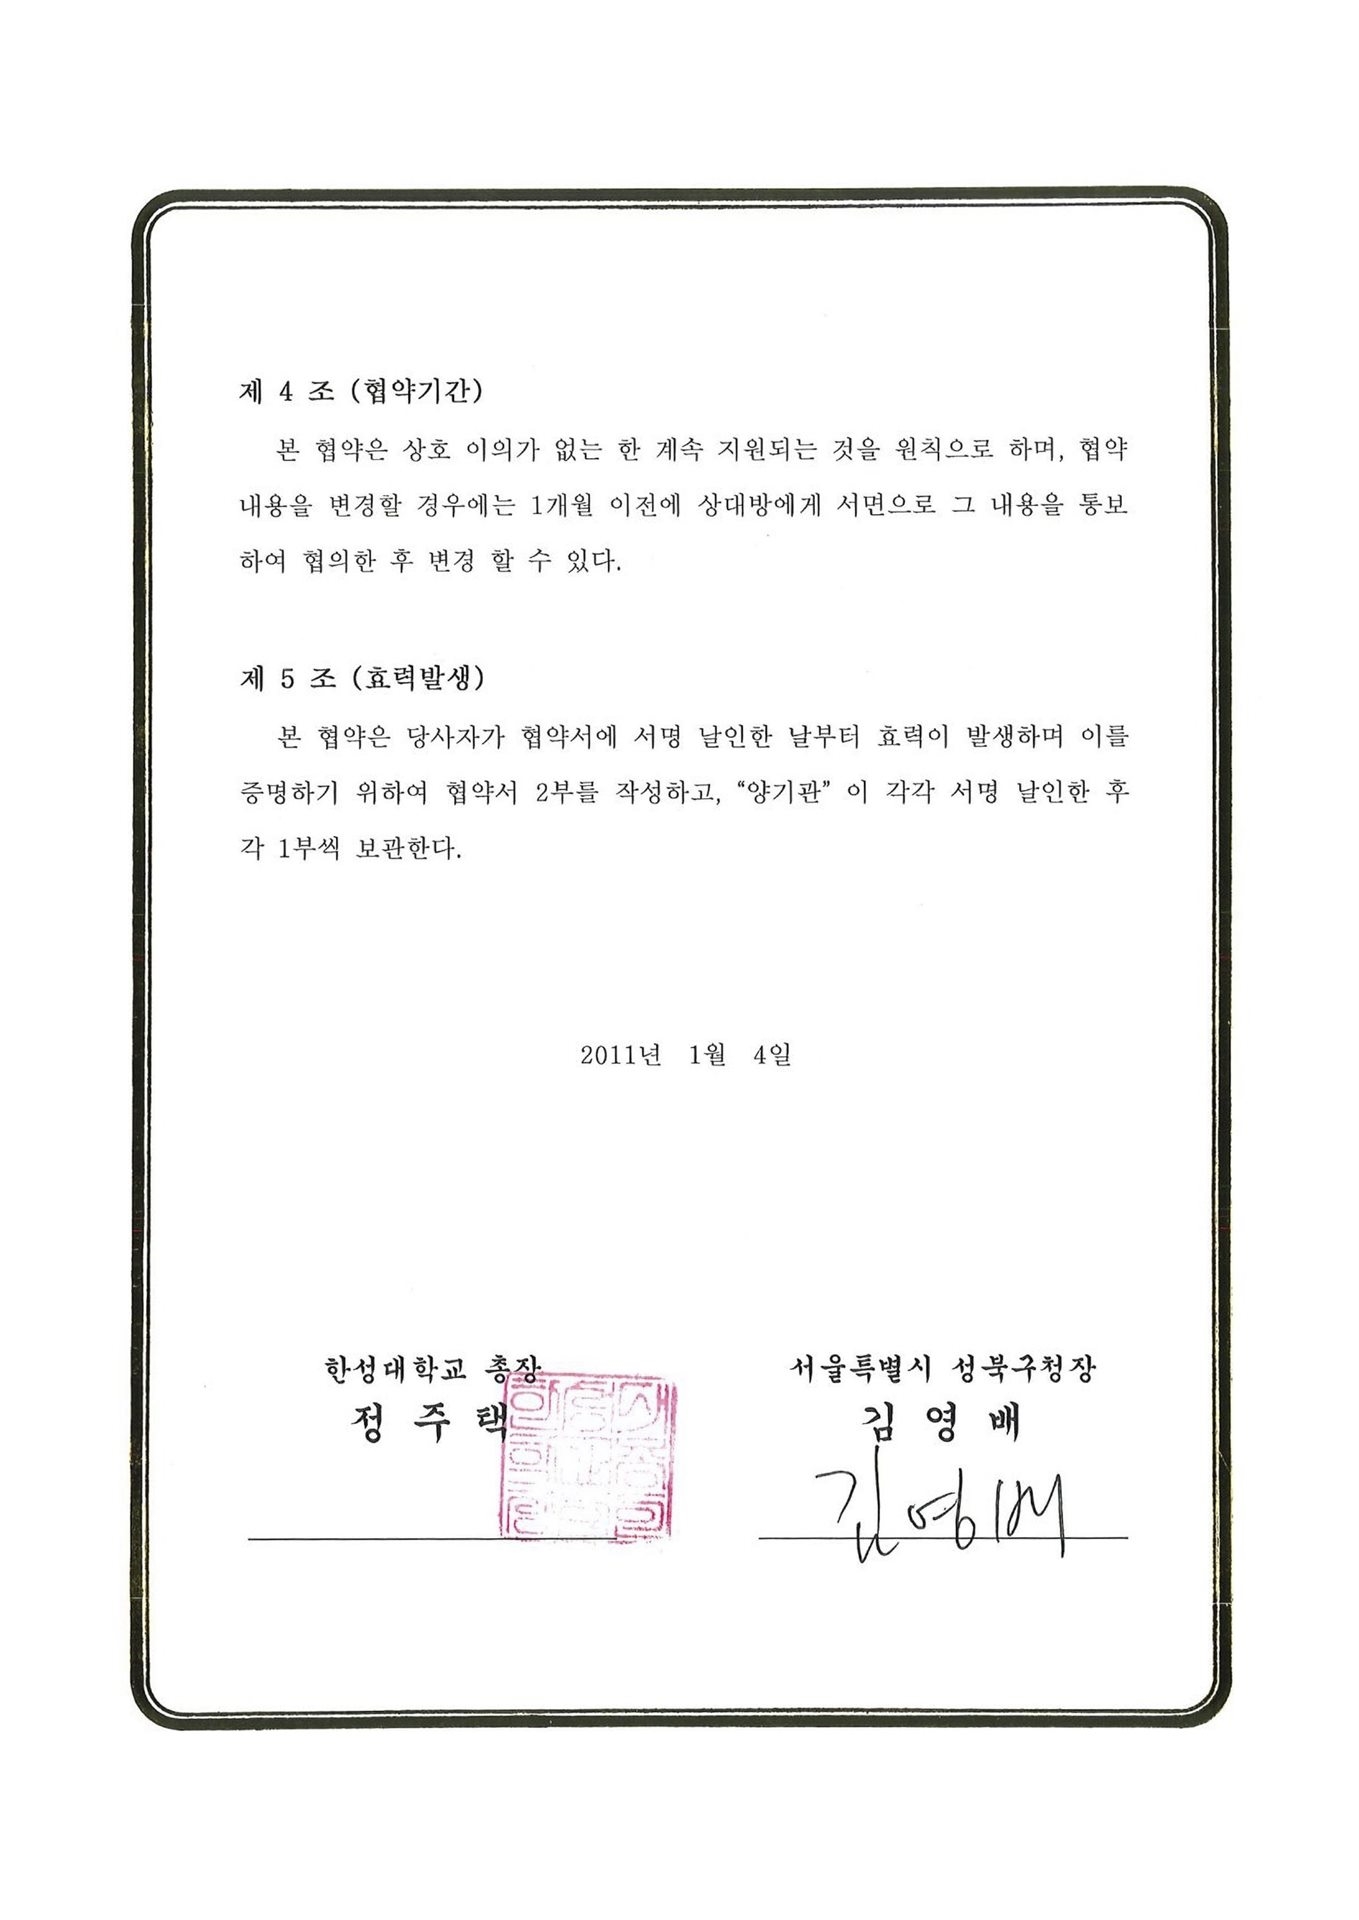 제 4 조 (협약기간)
본 협약은 상호 이의가 없는 한 계속 지원되는 것을 원칙으로 하며, 협약
내용을 변경할 경우에는 1개월 이전에 상대방에게 서면으로 그 내용을 통보
하여 협의한 후 변경 할 수 있다.
제 5 조 (효력발생)
본 협약은 당사자가 협약서에 서명 날인한 날부터 효력이 발생하며 이를
증명하기 위하여 협약서 2부를 작성하고, “양기관” 이 각각 서명 날인한 후
각 1부씩 보관한다.
2011년 1월 4일
한성대학교 총장
정 주 택
서울특별시 성북구청장
김 영 배
김영배